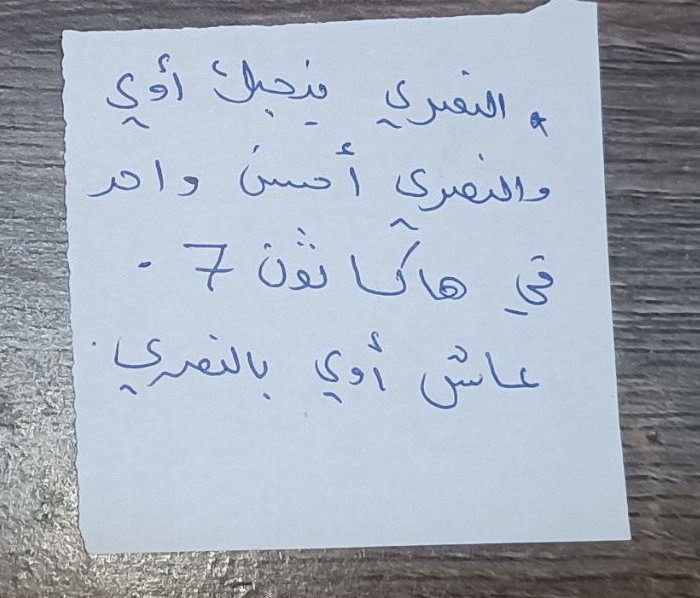 * النصري فنجبل أوي
والنصري أحسن واحد
في هاكاثون 7 .
عاش أوي بالنصري